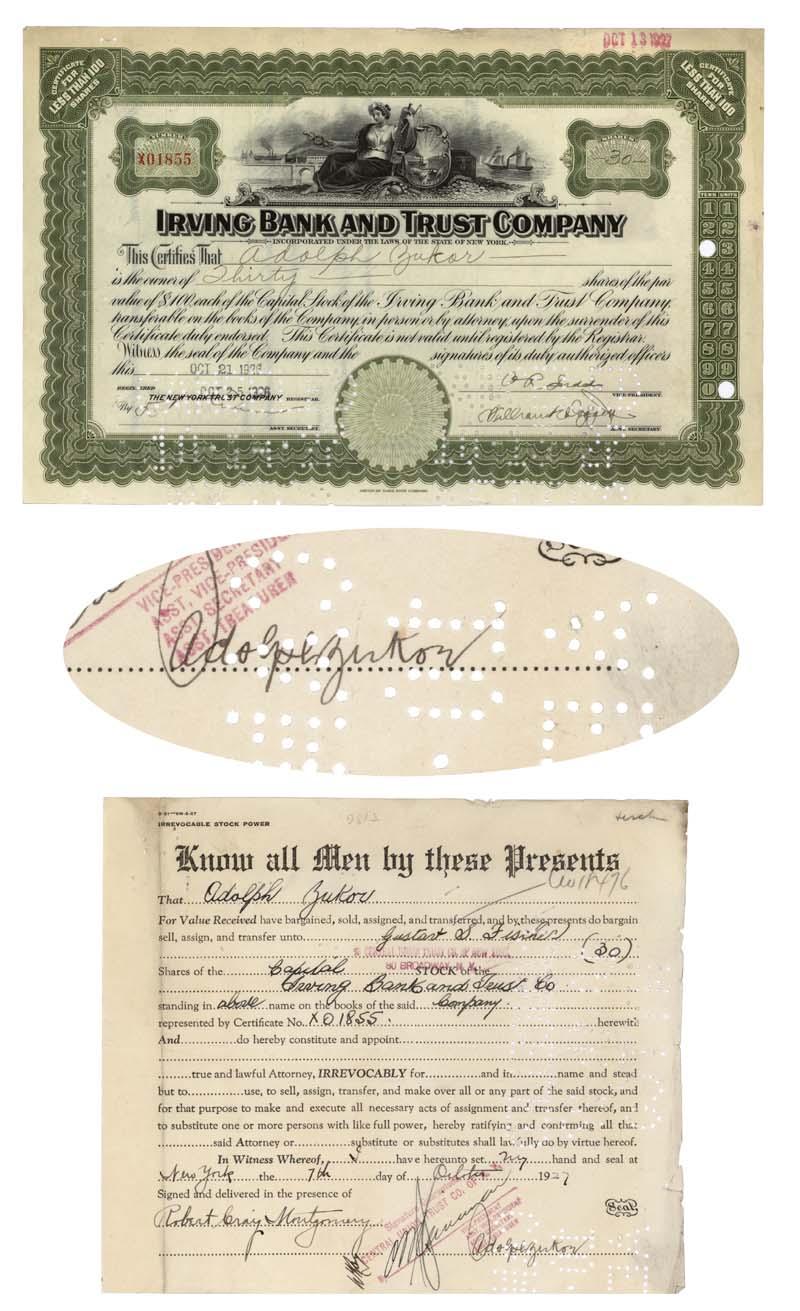 OCT 13 1927
CERTIFICATE FOR LESS THAN 100 SHARES
CERTIFICATE FOR LESS THAN 100 SHARES
NUMBER
X01855
SHARES
30
TENS UNITS
1 1
2 2
3
4 4
5 5
6 6
7 7
8 8
9 9
0
IRVING BANK AND TRUST COMPANY
INCORPORATED UNDER THE LAWS OF THE STATE OF NEW YORK.
This Certifies That Adolph Zukor
is the owner of Thirty shares of the par
value of $100. each of the Capital Stock of the Irving Bank and Trust Company,
transferable on the books of the Company, in person or by attorney, upon the surrender of this
Certificate duly endorsed. This Certificate is not valid until registered by the Registrar.
Witness the seal of the Company and the signatures of its duly authorized officers
this OCT 21 1926
OCT 25 1926
THE NEW YORK TRUST COMPANY REGISTRAR.
By
ASST. SECRETARY.
VICE-PRESIDENT.
ASST. SECRETARY.
VICE-PRESIDENT
ASST. VICE-PRESIDENT
ASST. SECRETARY
ASST. TREASURER
Adolph Zukor
IRREVOCABLE STOCK POWER
Know all Men by these Presents
That Adolph Zukor
For Value Received have bargained, sold, assigned, and transferred, and by these presents do bargain
sell, assign, and transfer unto Gustav S.
(30)
60 BROADWAY, N.Y.
Shares of the Capital STOCK of the
Irving Bank and Trust Co
standing in above name on the books of the said Company.
represented by Certificate No. X01855. herewith
And do hereby constitute and appoint
true and lawful Attorney, IRREVOCABLY for and in name and stead
but to use, to sell, assign, transfer, and make over all or any part of the said stock, and
for that purpose to make and execute all necessary acts of assignment and transfer thereof, and
to substitute one or more persons with like full power, hereby ratifying and confirming all that
said Attorney or substitute or substitutes shall lawfully do by virtue hereof.
In Witness Whereof, I have hereunto set my hand and seal at
New York the 7th day of October 1927
Signed and delivered in the presence of
Seal
Robert Craig Montgomery
CENTRAL UNION TRUST CO. OF
Adolph Zukor